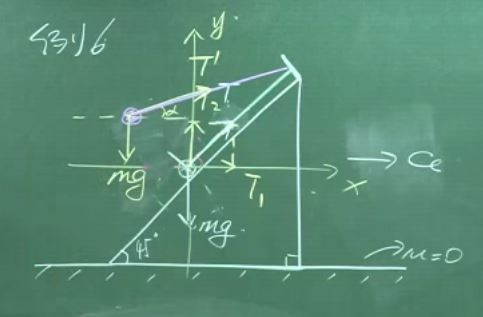 例6
y
T'
T₂
T
α
mg
T₁
x
a
mg
45°
μ=0